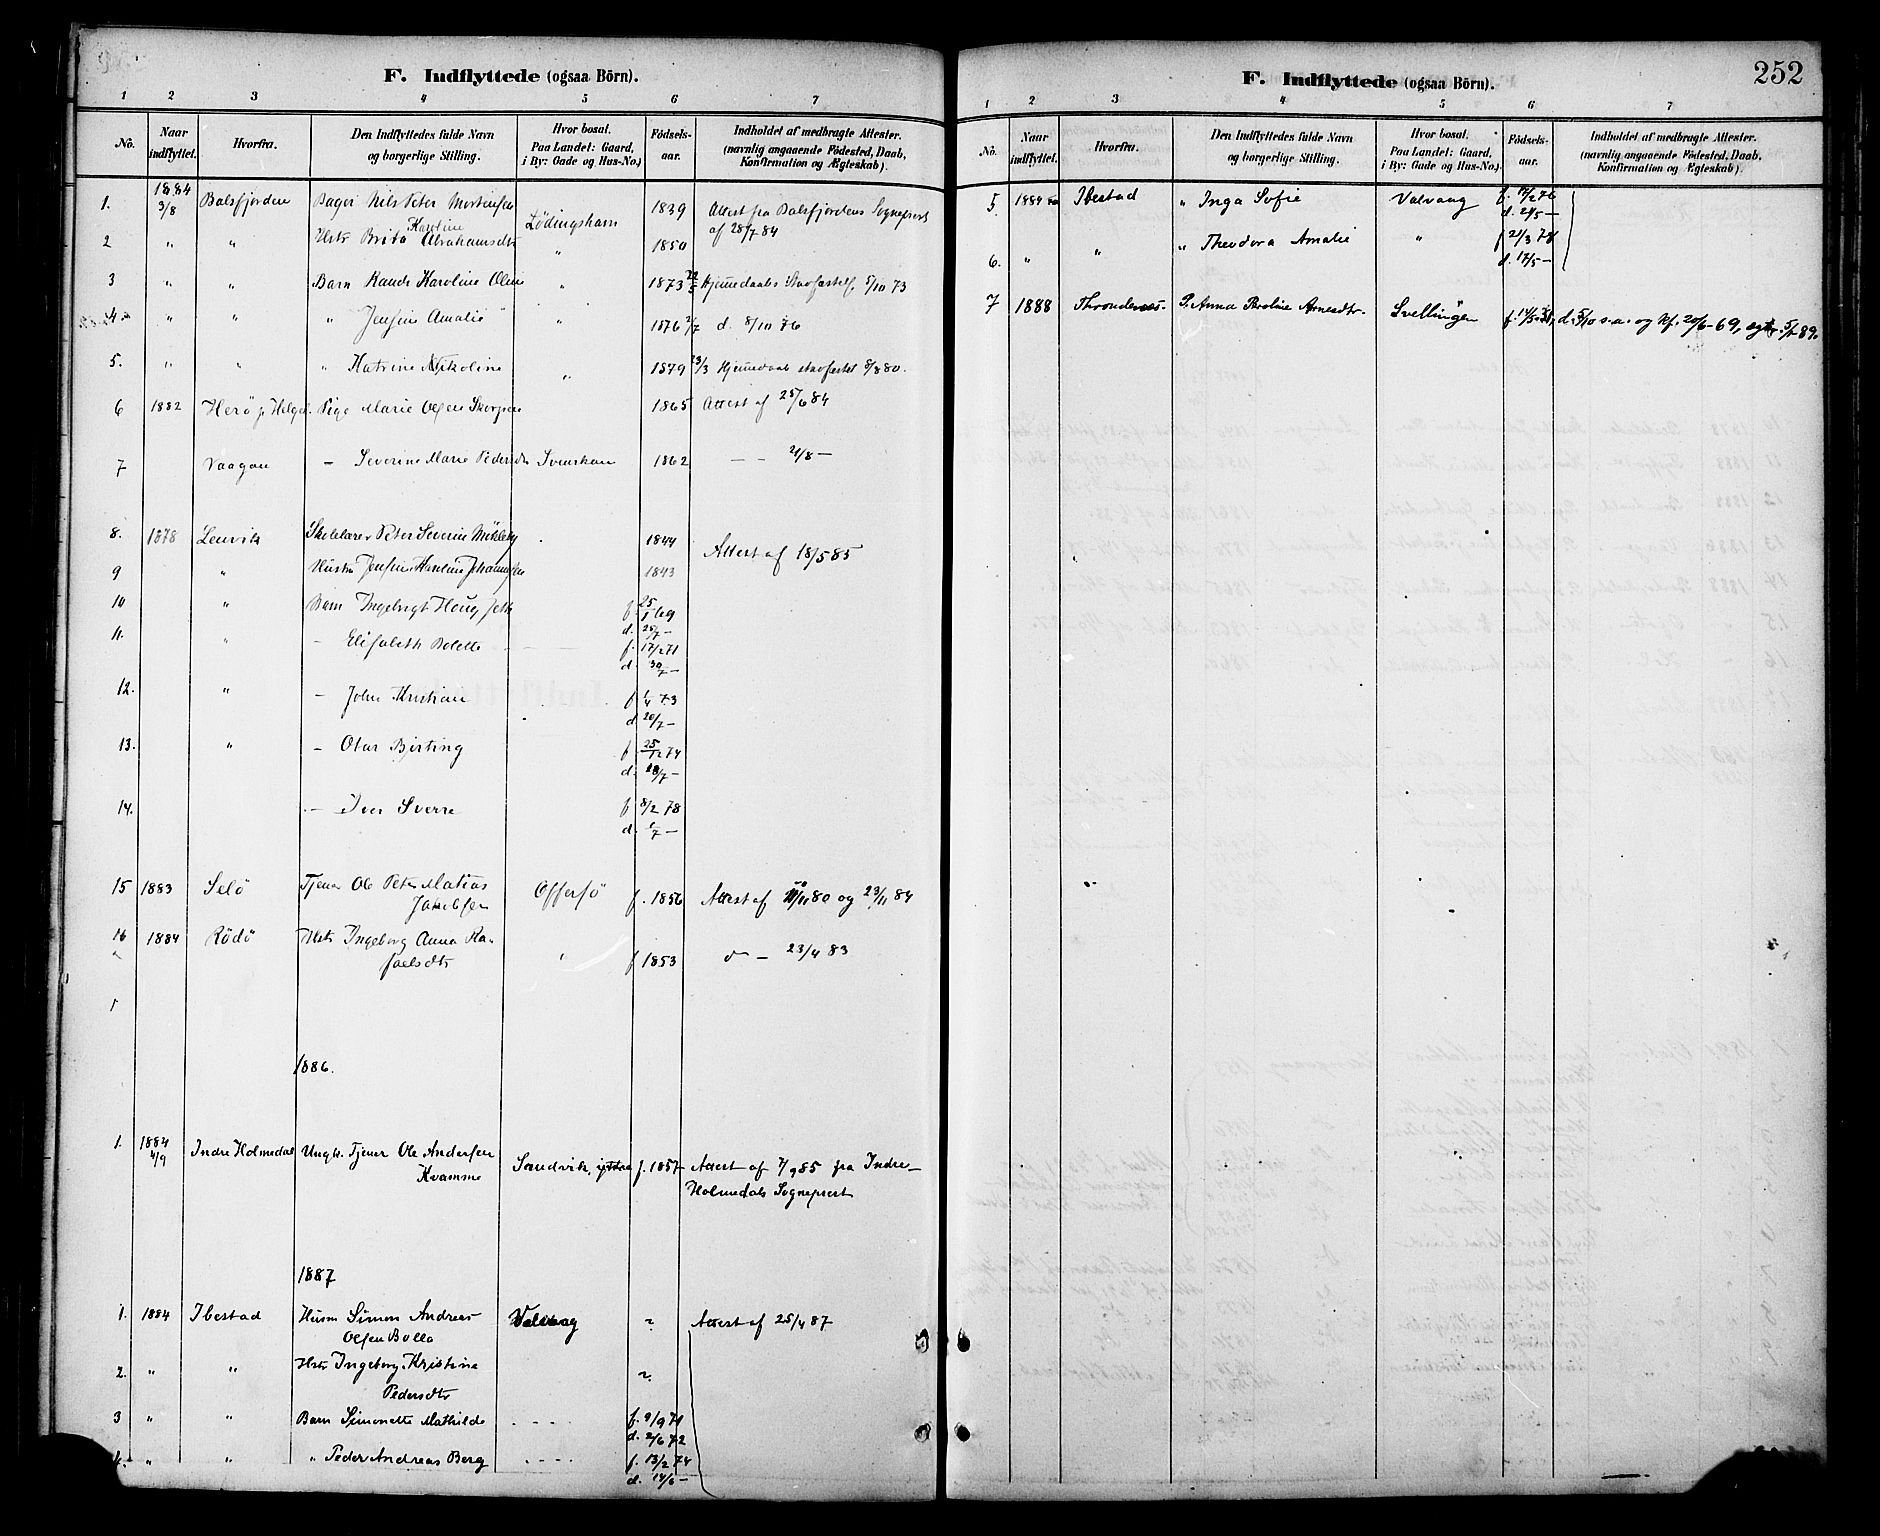 F. Indflyttede (ogsaa Börn).
1 2 3 4 5 6 7
No. Naar indflyttet. Hvorfra. Den Indflyttedes fulde Navn og borgerlige Stilling. Hvor bosat. Paa Landet: Gaard, i By: Gade og Hus-No.) Födsels-aar. Indholdet af medbragte Attester. (navnlig angaaende Födested, Daab, Konfirmation og Ægteskab).
1. 1884 3/8 Balsfjorden Bager Nils Peter Mortensen Lödingshavn 1839 Attest fra Balsfjordens Sogneprest af 28/7 84
2 " " Hstr Brita Karoline Abrahamsdtr " 1850
3 " " Barn Karoline Oline " 1873 Hjemmedaab Stadfæstet 5/10 73
4. " " " Jensine Amalie " 1876 2/7 d. 8/10 76
5. " " " Katrine Nikoline " 1879 23/3 Hjemmedaab stadfæstet 8/8 80.
6 1882 Herö Pige Marie Olsen 1865 Attest af 25/6 84
7 Vaagan — Severine Marie Pedersdtr Svenskan 1862 — — 21/8 —
8. 1878 Lenvik Skolelærer Peter Severin 1844 Attest af 18/5 85
9 " Hustru Jensine 1843
10 " Barn Ingebrigt f. 25/1 69
d. 25/7 —
11. " — Elisabeth Bolette f. 17/2 71
d. 30/7 —
12. " — John Kristian f. 1/4 73
d. 20/7 —
13. " — Otar Birting f. 25/12 74
d. 18/7 —
14. — Iver Sverre f 8/2 78
d. 1/7 —
15 1883 Selö Tjener Ole Peter Matias Jakobsen Offersö f. 1856 Attest af 11/11 80 og 23/11 84
16 1884 Rödö Hstr Ingeborg Anna Rafaelsdtr " f 1853 — 23/4 83
1886.
1. 1884 4/9 Indre Holmedal Ungk. Tjener Ole Andersen Kvamme Sandvik, f. 1857 Attest af 7/9 85 fra Indre Holmedals Sogneprest
1887
1. 1884 Ibestad Husm Simon Andreas Olsen Bolla Valvaag ? Attest af 25/4 87
2. " " Hstr Ingeborg Kristine Pedersdtr ?
3 " " Barn Simonette Mathilde - - - - f. 9/9 71
d. 2/6 72
4. " " " Peder Andreas Berg - - - - f. 13/2 74
d. 14/6 —
252
F. Indflyttede (ogsaa Börn).
1 2 3 4 5 6 7
No. Naar indflyttet. Hvorfra. Den Indflyttedes fulde Navn og borgerlige Stilling. Hvor bosat. Paa Landet: Gaard, i By: Gade og Hus-No.) Födsels-aar. Indholdet af medbragte Attester. (navnlig angaaende Födested, Daab, Konfirmation og Ægteskab).
5. 1884 Ibestad " Inga Sofie Valvaag f. 17/2 76
d. 2/5 —
6. " " " Theodora Amalie " f 21/3 78
d. 17/5 —
7 1888 Throndenes. P. Anna Arnesdtr. Svellingen d. 5/10 s.a. og kf. 20/6 - 69,